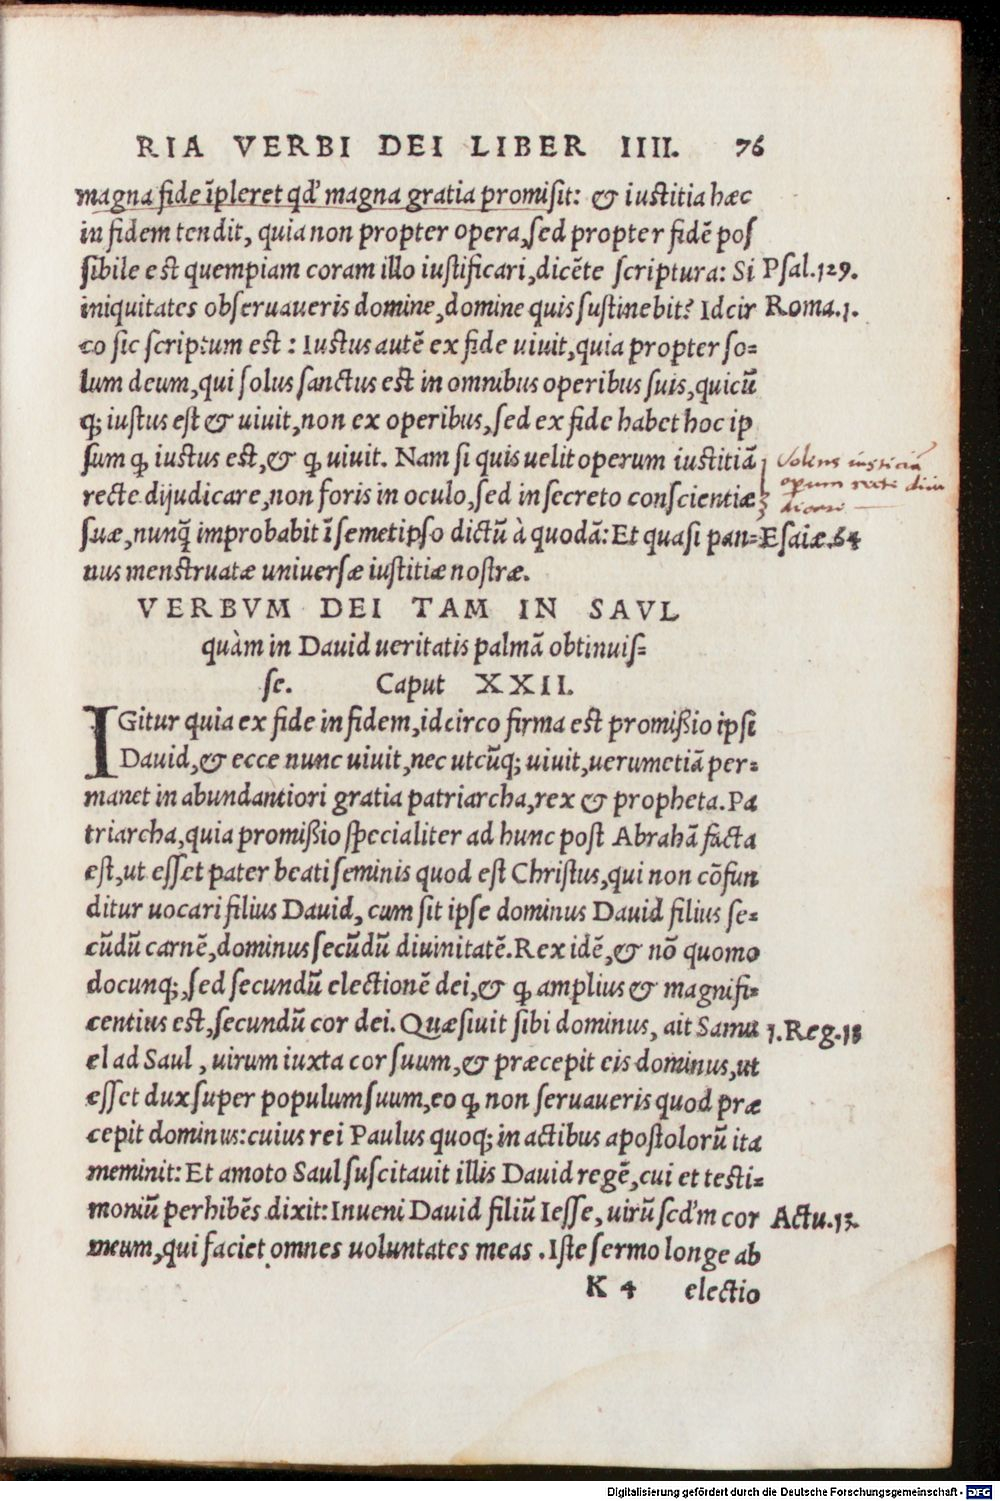 RIA VERBI DEI LIBER IIII. 76
magna fide īpleret qd' magna gratia promisit: & iustitia hæc
in fidem tendit, quia non propter opera, sed propter fidē pos
sibile est quempiam coram illo iustificari, dicēte scriptura: Si Psal.129.
iniquitates observaveris domine, domine quis sustinebit? Idcir Roma.1.
co sic scriptum est: Iustus autē ex fide vivit, quia propter so=
lum deum, qui solus sanctus est in omnibus operibus suis, quicū
q; iustus est & vivit, non ex operibus, sed ex fide habet hoc ip
sum ꝙ iustus est, & ꝙ vivit. Nam si quis velit operum iustitiā
recte dijudicare, non foris in oculo, sed in secreto conscientiæ
Volens iusticiā
operum recte diiu
dicari
suæ, nunq̄ improbabit ī semetipso dictū à quodā: Et quasi pan= Esaiæ.64
nus menstruatæ universæ iustitiæ nostræ.
VERBVM DEI TAM IN SAVL
quàm in David veritatis palmā obtinuis=
se. Caput XXII.
IGitur quia ex fide in fidem, idcirco firma est promißio ipsi
David, & ecce nunc vivit, nec utcūq; vivit, verumetiā per=
manet in abundantiori gratia patriarcha, rex & propheta. Pa
triarcha, quia promißio specialiter ad hunc post Abrahā facta
est, ut esset pater beati seminis quod est Christus, qui non cōfun
ditur vocari filius David, cum sit ipse dominus David filius se=
cūdū carnē, dominus secūdū divinitatē. Rex idē, & nō quomo
docunq;, sed secundū electionē dei, & ꝙ amplius & magnifi=
centius est, secundū cor dei. Quæsivit sibi dominus, ait Samu 1.Reg.13
el ad Saul, virum iuxta cor suum, & præcepit eis dominus, ut
esset dux super populum suum, eo ꝙ non servaveris quod præ
cepit dominus: cuius rei Paulus quoq; in actibus apostolorū ita
meminit: Et amoto Saul suscitavit illis David regē, cui et testi=
moniū perhibēs dixit: Inveni David filiū Iesse, virū scd'm cor Actu.13.
meum, qui faciet omnes voluntates meas. Iste sermo longe ab
K 4 electio
Digitalisierung gefördert durch die Deutsche Forschungsgemeinschaft - DFG